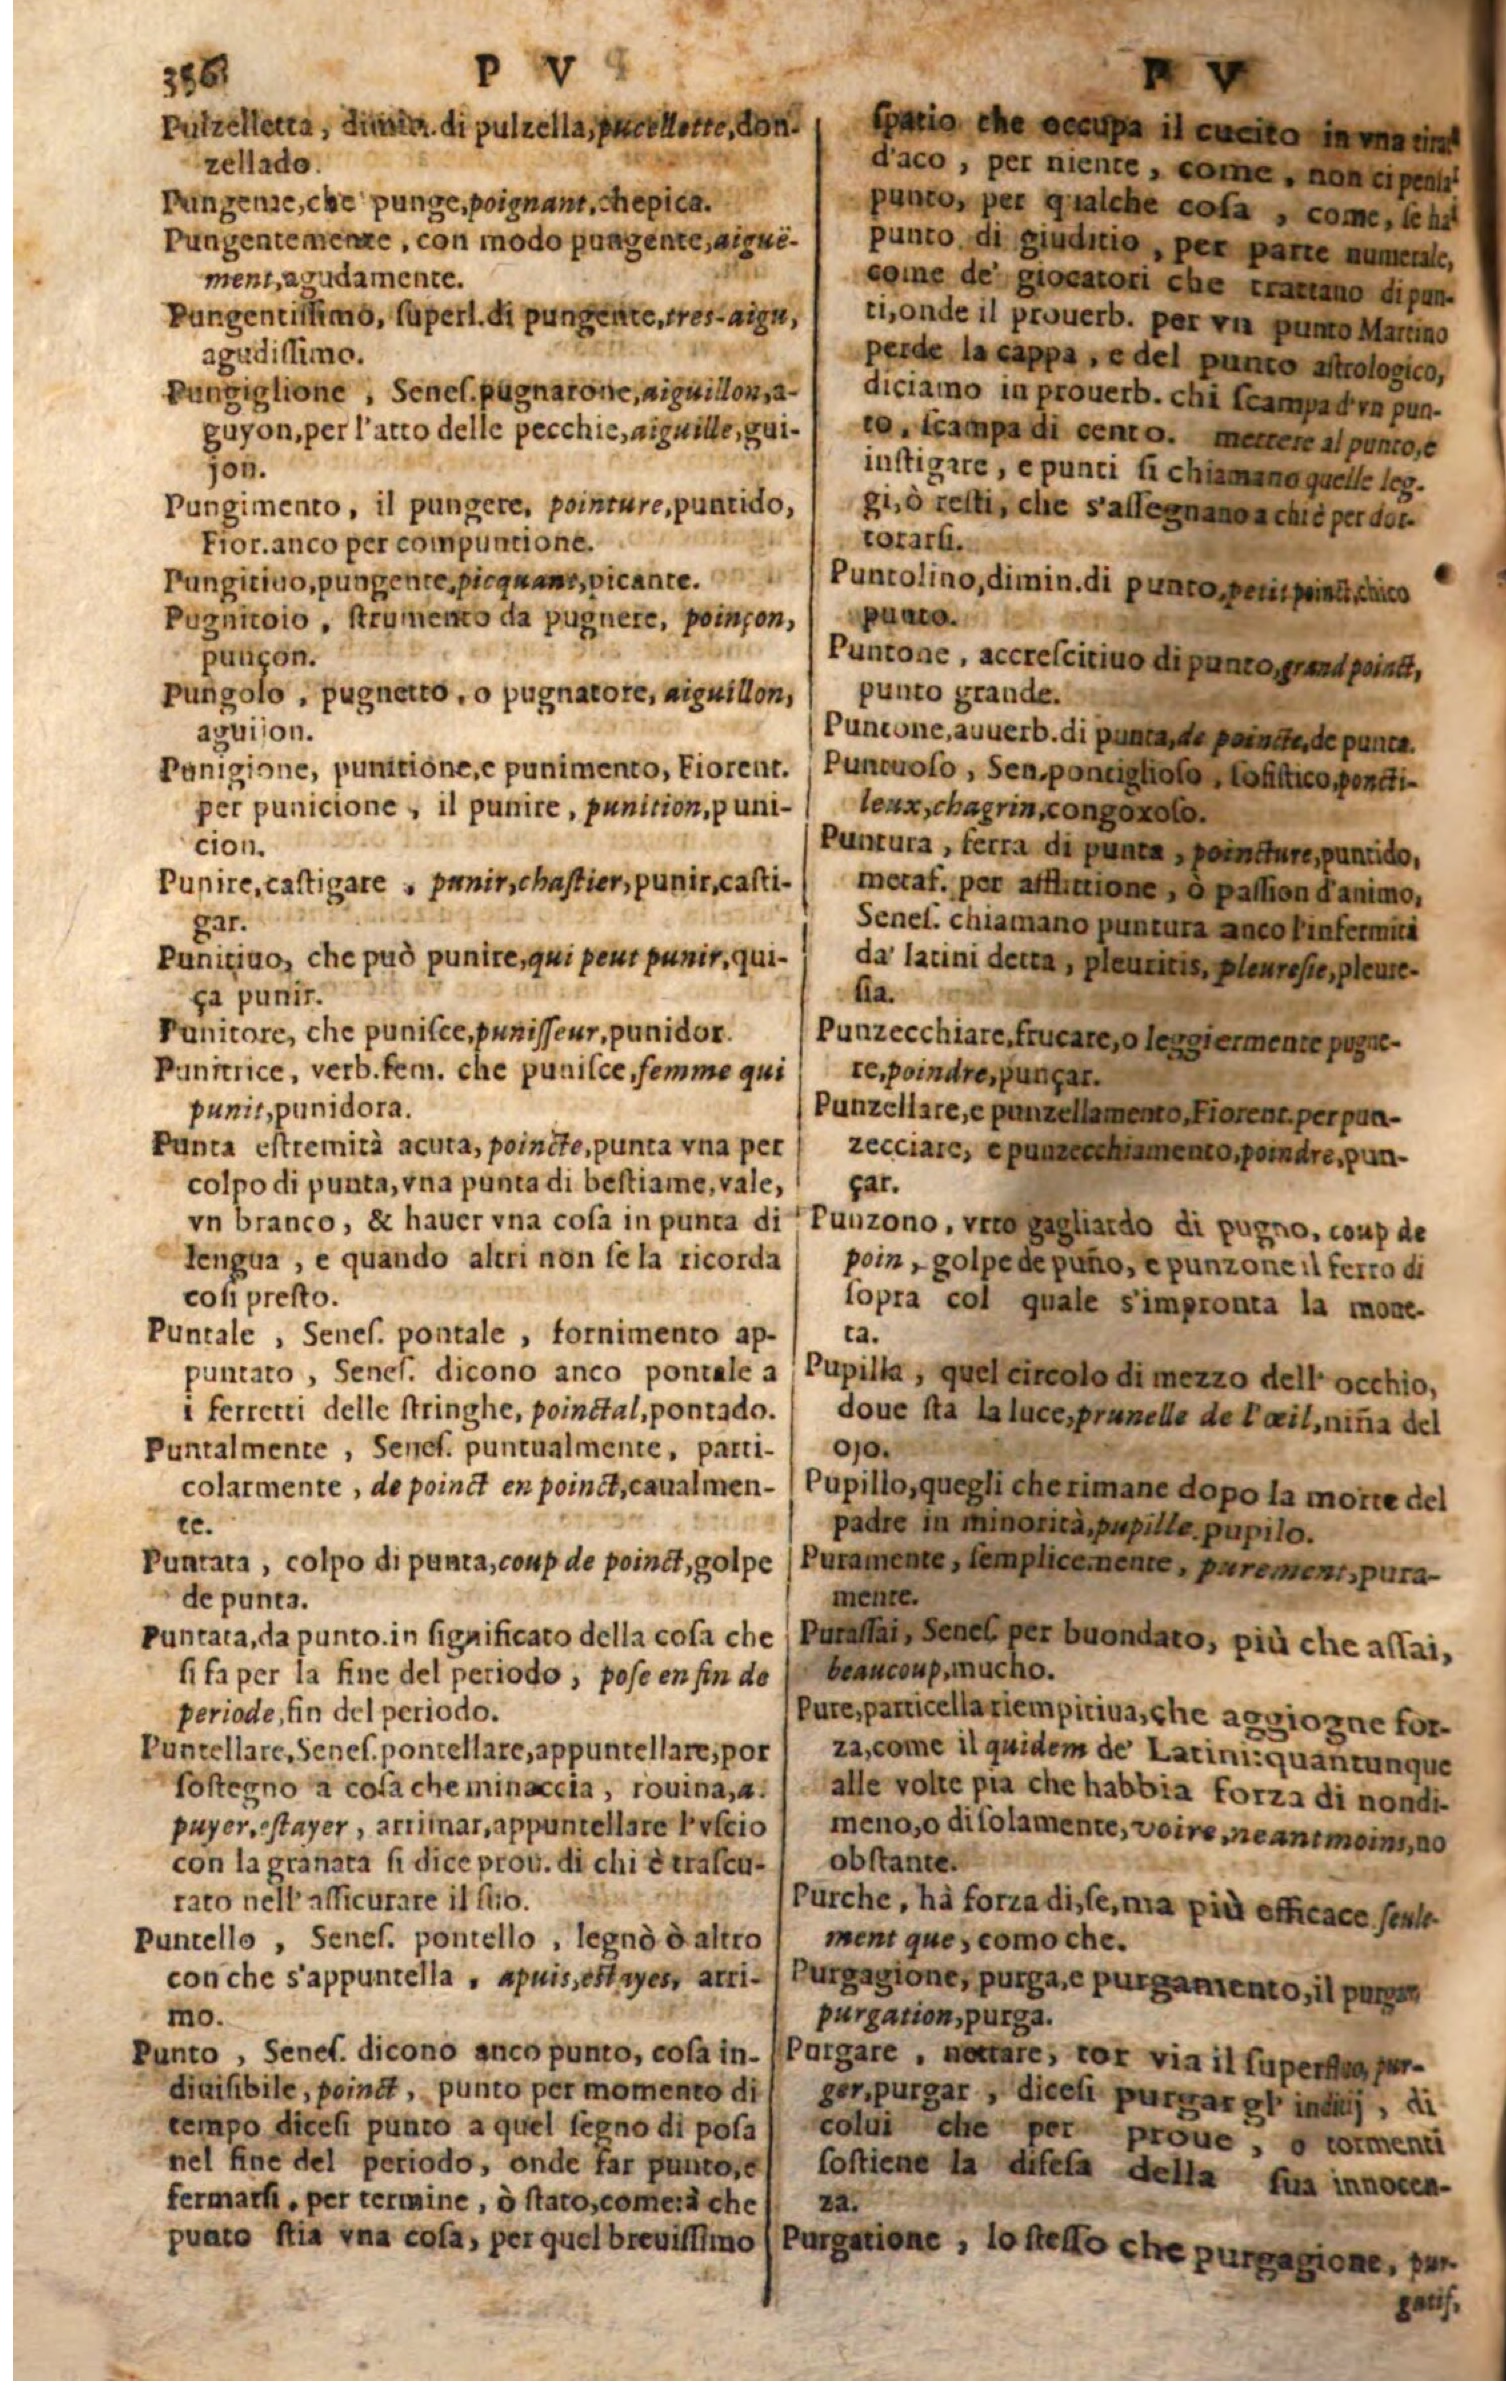 356
P V
Pulzelletta, dimin. di pulzella, pucellette, don-
zellado.
Pungente, che punge, poignant, chepica.
Pungentemente, con modo pungente, aiguë-
ment, agudamente.
Pungentiſſimo, ſuperl. di pungente, tres-aigu,
agudiſſimo.
Pungiglione, Seneſ. pugnatone, aiguillon, a-
guyon, per l'atto delle pecchie, aiguille, gui-
jon.
Pungimento, il pungere, pointure, puntido,
Fior. anco per compuntione.
Pungitiuo, pungente, picquant, picante.
Pugnitoio, ſtrumento da pugnere, poinçon,
punçon.
Pungolo, pugnetto, o pugnatore, aiguillon,
aguijon.
Punigione, punitione, e punimento, Fiorent.
per punicione, il punire, punition, puni-
cion.
Punire, caſtigare, punir, chaſtier, punir, caſti-
gar.
Punitiuo, che può punire, qui peut punir, qui-
ça punir.
Punitore, che puniſce, puniſſeur, punidor.
Punitrice, verb. fem. che puniſce, femme qui
punit, punidora.
Punta eſtremità acuta, poincte, punta vna per
colpo di punta, vna punta di beſtiame, vale,
vn branco, & hauer vna coſa in punta di
lengua, e quando altri non ſe la ricorda
coſi preſto.
Puntale, Seneſ. pontale, fornimento ap-
puntato, Seneſ. dicono anco pontale a
i ferretti delle ſtringhe, poinctal, pontado.
Puntalmente, Seneſ. puntualmente, parti-
colarmente, de poinct en poinct, caualmen-
te.
Puntata, colpo di punta, coup de poinct, golpe
de punta.
Puntata, da punto. in ſignificato della coſa che
ſi fa per la fine del periodo, poſe en fin de
periode, fin del periodo.
Puntellare, Seneſ. pontellare, appuntellare, por
ſoſtegno a coſa che minaccia, rouina, a.
puyer, eſtayer, arrimar, appuntellare l'vſcio
con la granata ſi dice prou. di chi è traſcu-
rato nell'aſſicurare il ſuo.
Puntello, Seneſ. pontello, legnò ò altro
con che s'appuntella, apuis, eſtayes, arri-
mo.
Punto, Seneſ. dicono anco punto, coſa in-
diuiſibile, poinct, punto per momento di
tempo diceſi punto a quel ſegno di poſa
nel fine del periodo, onde far punto, e
fermarſi, per termine, ò ſtato, come: à che
punto ſtia vna coſa, per quel breuiſſimo
P V
ſpatio che occupa il cucito in vna tirat
d'aco, per niente, come, non ci penſai
punto, per qualche coſa, come, ſe hai
punto di giuditio, per parte numerale,
come de' giocatori che trattano di pun-
ti, onde il prouerb. per vn punto Martino
perde la cappa, e del punto aſtrologico,
diciamo in prouerb. chi ſcampa d'vn pun-
to, ſcampa di cento. mettere al punto, e
inſtigare, e punti ſi chiamano quelle leg-
gi, ò teſti, che s'aſſegnano a chi è per dot-
torarſi.
Puntolino, dimin. di punto, petit poinct, chico
punto.
Puntone, accreſcitiuo di punto, grand poinct,
punto grande.
Puntone, auuerb. di punta, de poincte, de punta.
Puntuoſo, Sen. pontiglioſo, ſofiſtico, poncti-
leux, chagrin, congoxoſo.
Puntura, ferra di punta, poincture, puntido,
metaf. per afflittione, ò paſſion d'animo,
Seneſ. chiamano puntura anco l'infermità
da' latini detta, pleuritis, pleureſie, pleure-
ſia.
Punzecchiare, frucare, o leggiermente pugne-
re, poindre, punçar.
Punzellare, e punzellamento, Fiorent. per pun-
zecciare, e punzecchiamento, poindre, pun-
çar.
Punzono, vrto gagliardo di pugno, coup de
poin, golpe de puño, e punzone il ferro di
ſopra col quale s'impronta la mone-
ta.
Pupilla, quel circolo di mezzo dell' occhio,
doue ſta la luce, prunelle de l'œil, niña del
ojo.
Pupillo, quegli che rimane dopo la morte del
padre in minorità, pupille. pupilo.
Puramente, ſemplicemente, purement, pura-
mente.
Puraſſai, Seneſ. per buondato, più che aſſai,
beaucoup, mucho.
Pure, particella riempitiua, che aggiogne for-
za, come il quidem de' Latini: quantunque
alle volte pia che habbia forza di nondi-
meno, o di ſolamente, voire, neantmoins, no
obſtante.
Purche, hà forza di, ſe, ma più efficace ſeule-
ment que, como che.
Purgagione, purga, e purgamento, il purgar
purgation, purga.
Purgare, nettare, tor via il ſuperfluo, pur-
ger, purgar, diceſi purgar gl' inditij, di
colui che per proue, o tormenti
ſoſtiene la difeſa della ſua innocen-
za.
Purgatione, lo ſteſſo che purgagione, pur-
gatiſ.